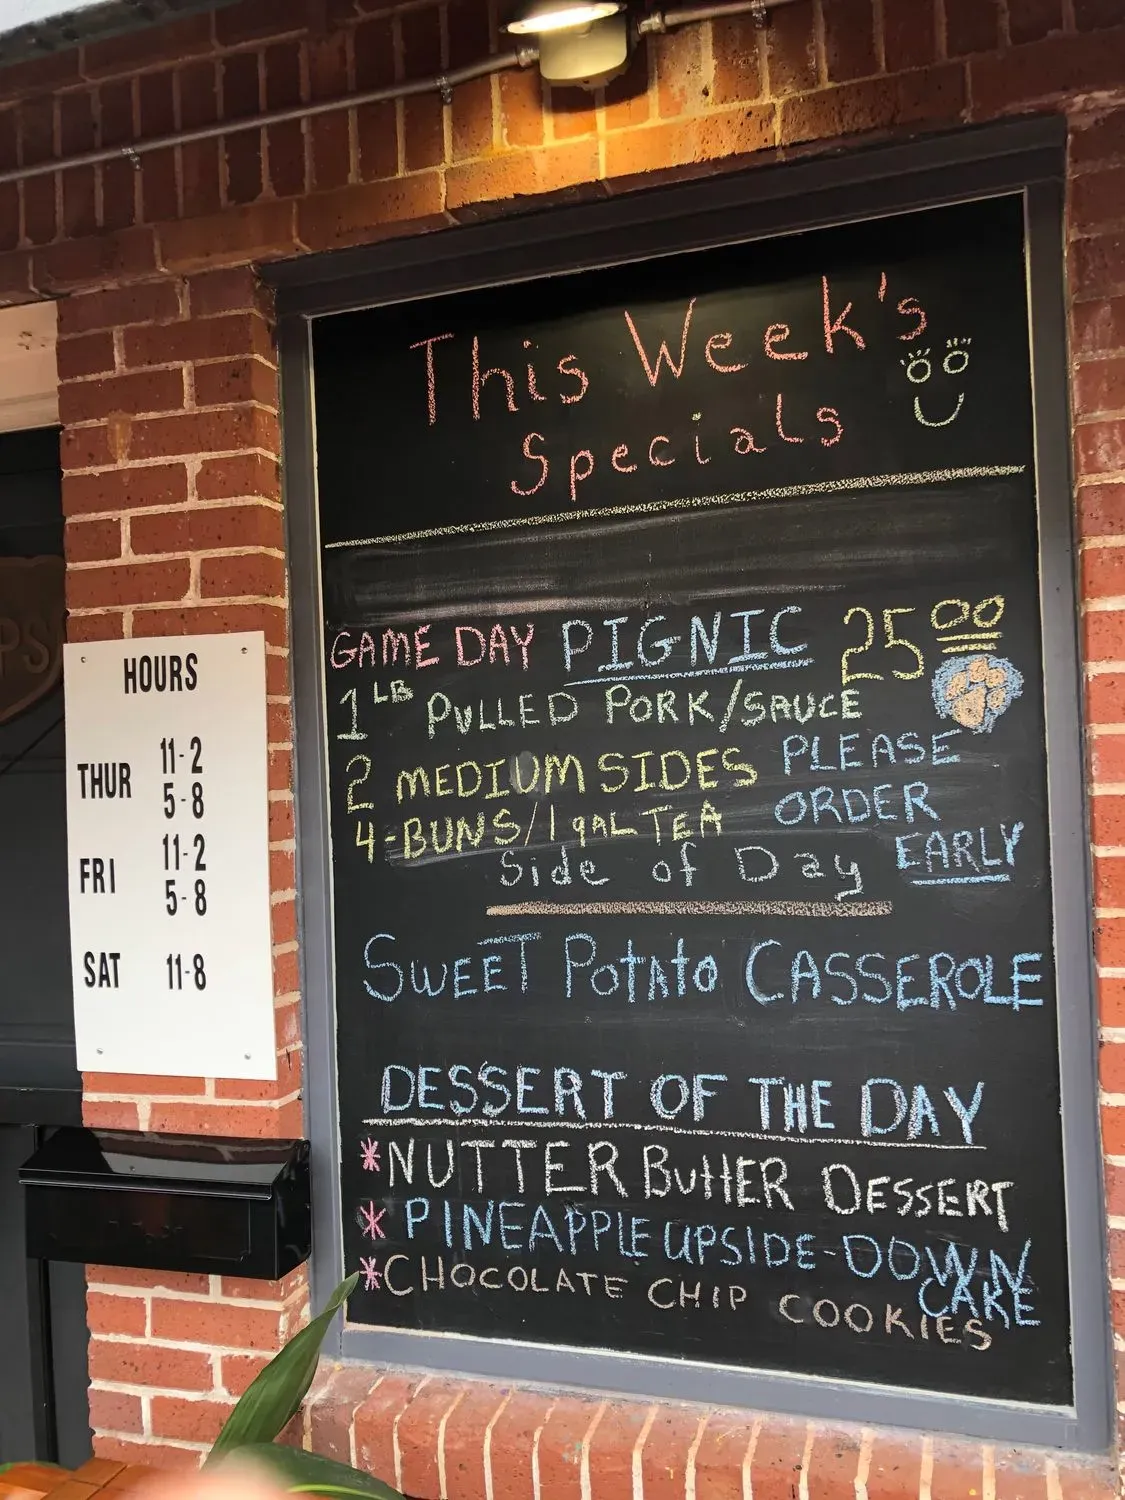 This Week's
Specials
GAME DAY PIGNIC 25 00
1 LB PULLED PORK/SAUCE
2 MEDIUM SIDES
4-BUNS/1 gAL TEA
PLEASE
ORDER
EARLY
Side of Day
SWEET PotAto CASSEROLE
DESSERT OF THE DAY
*NUTTER ButtER DESSERT
* PINEAPPLE UPSIDE-DOWN
CAKE
*CHOCOLATE CHIP COOKIES
HOURS
THUR 11-2
5-8
FRI 11-2
5-8
SAT 11-8
PS